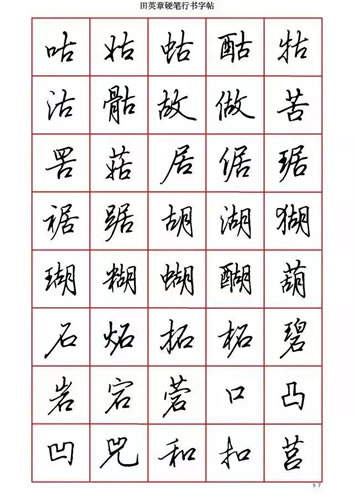 田英章硬笔行书字帖
咕姑蛄酤牯
沽骷故做苦
罟菇居倨琚
裾踞胡湖猢
瑚糊蝴醐葫
石炻拓柘碧
岩宕菪口凸
凹兕和扣莒
97